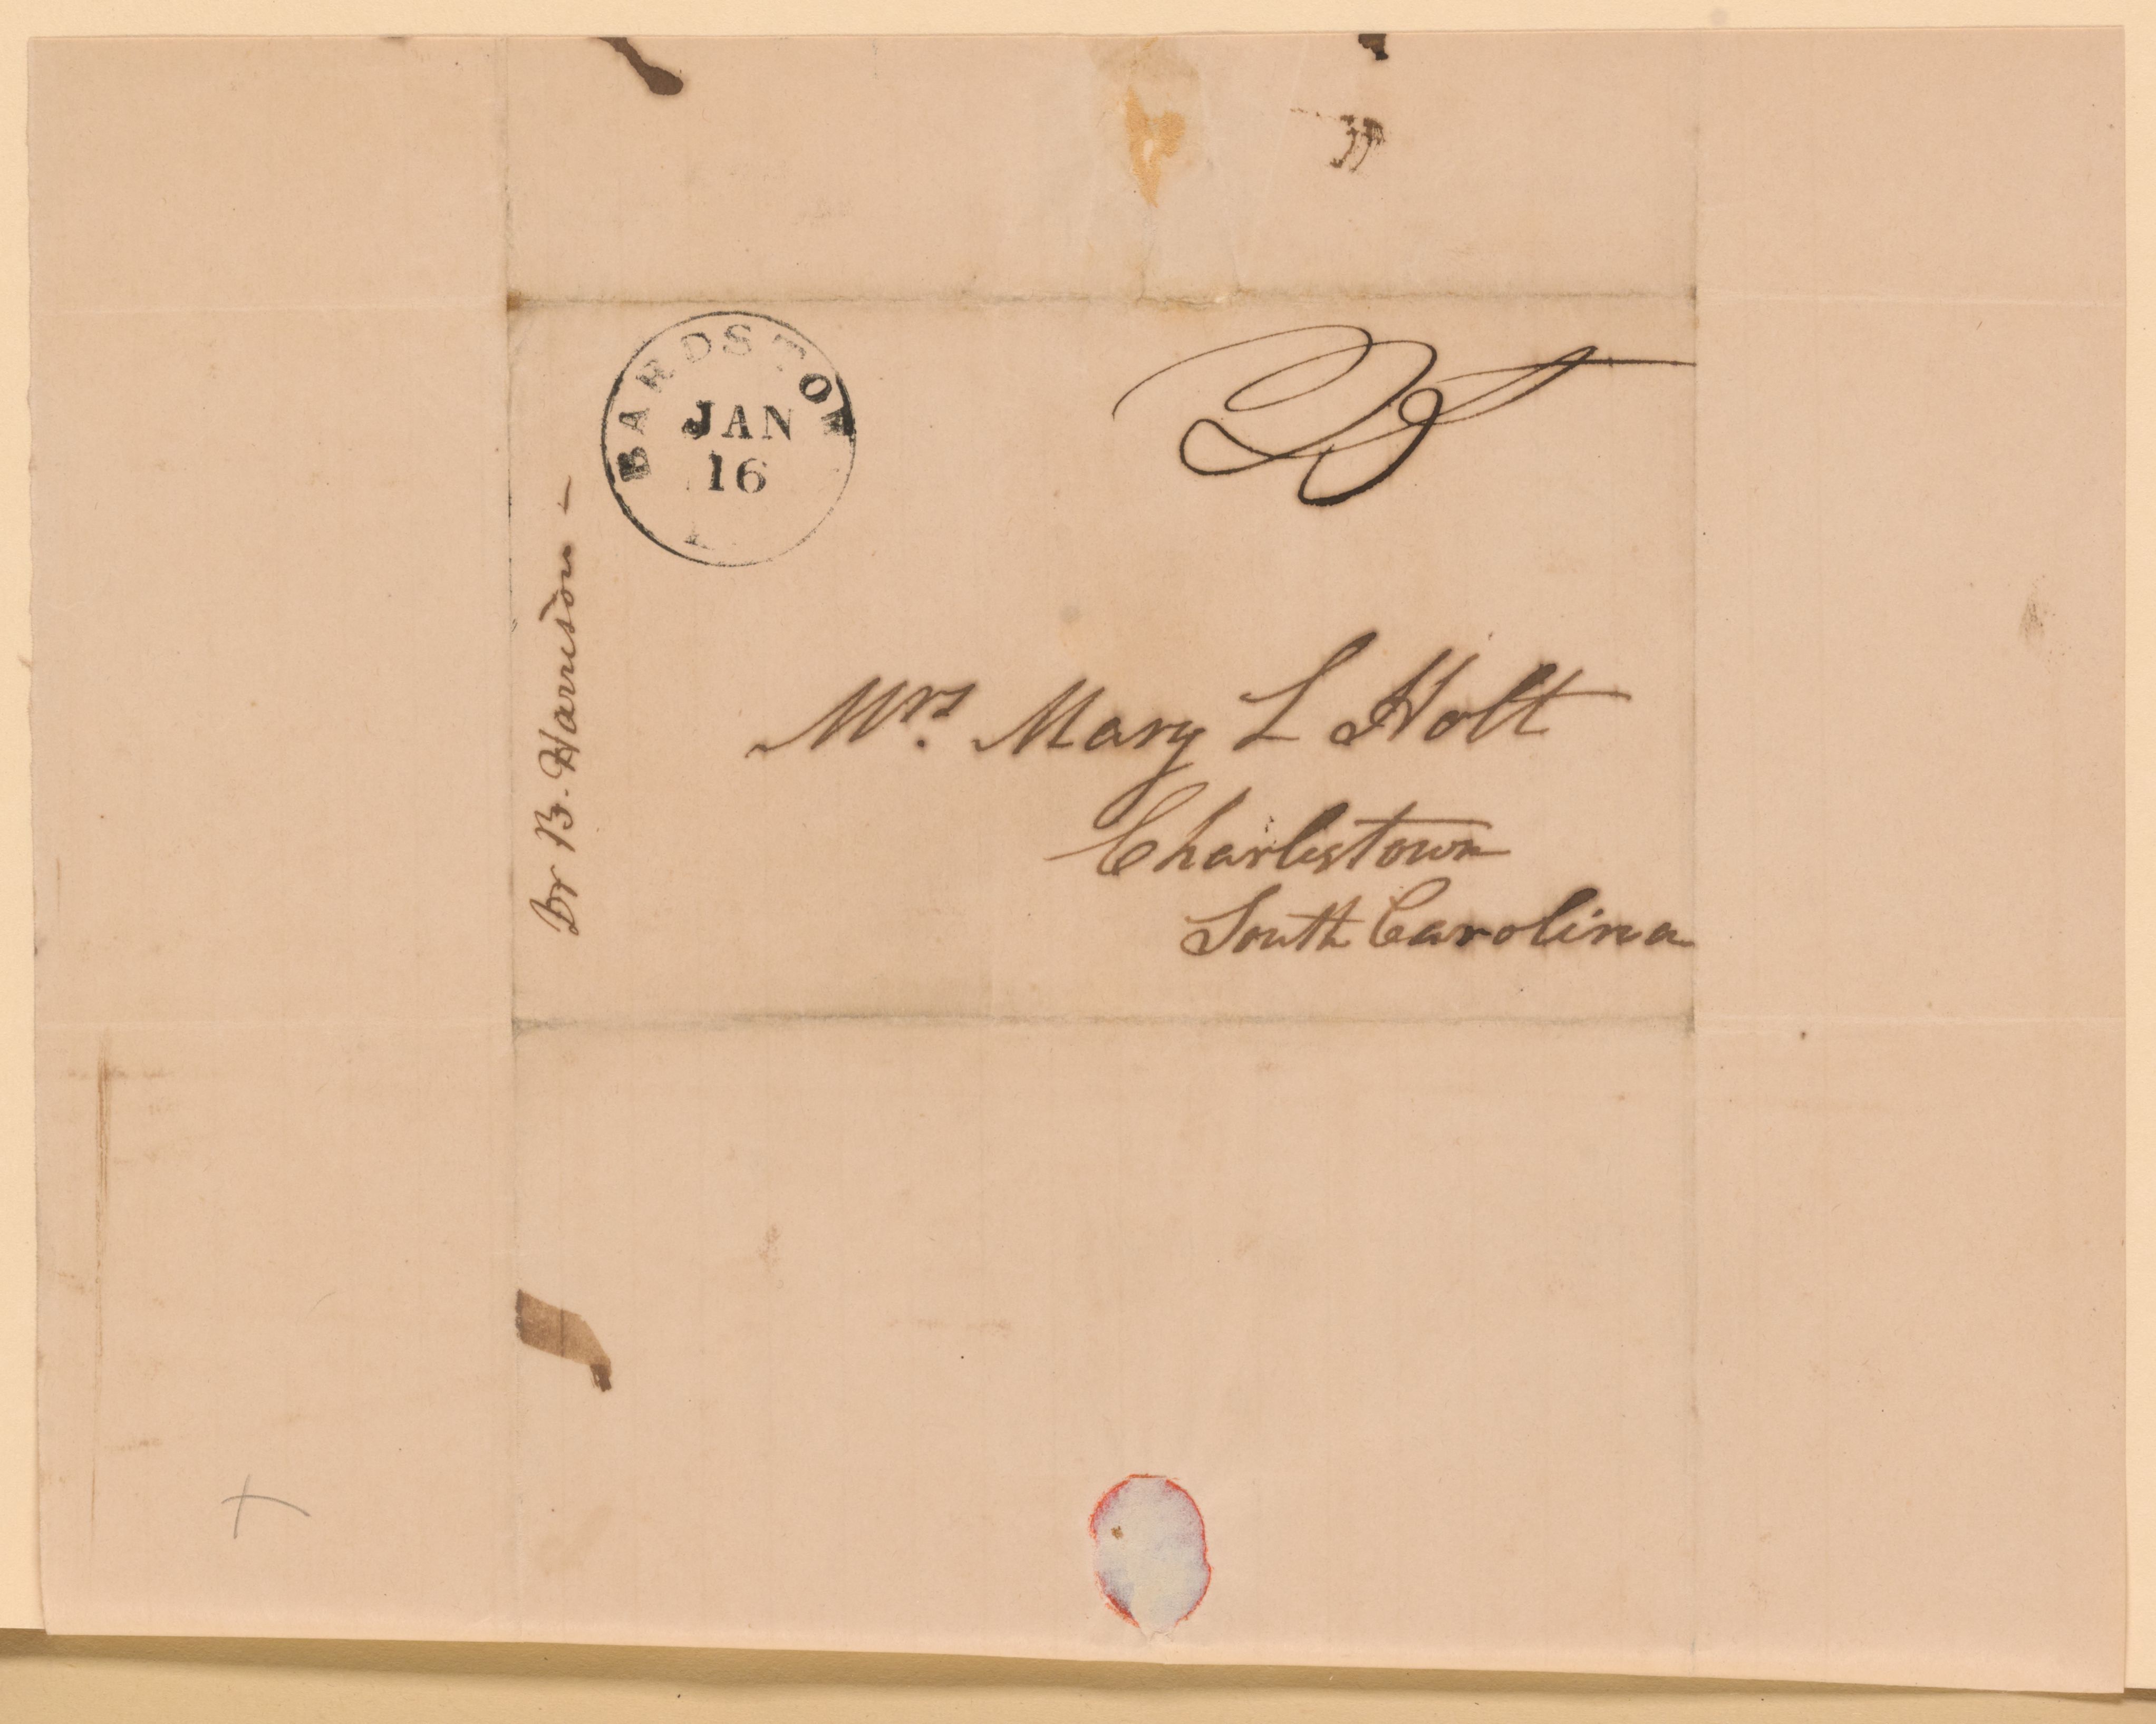 BARDSTOW
JAN
16
25
Mrs. Mary L Holt
Charlestown
South Carolina
Dr B. Harrison -